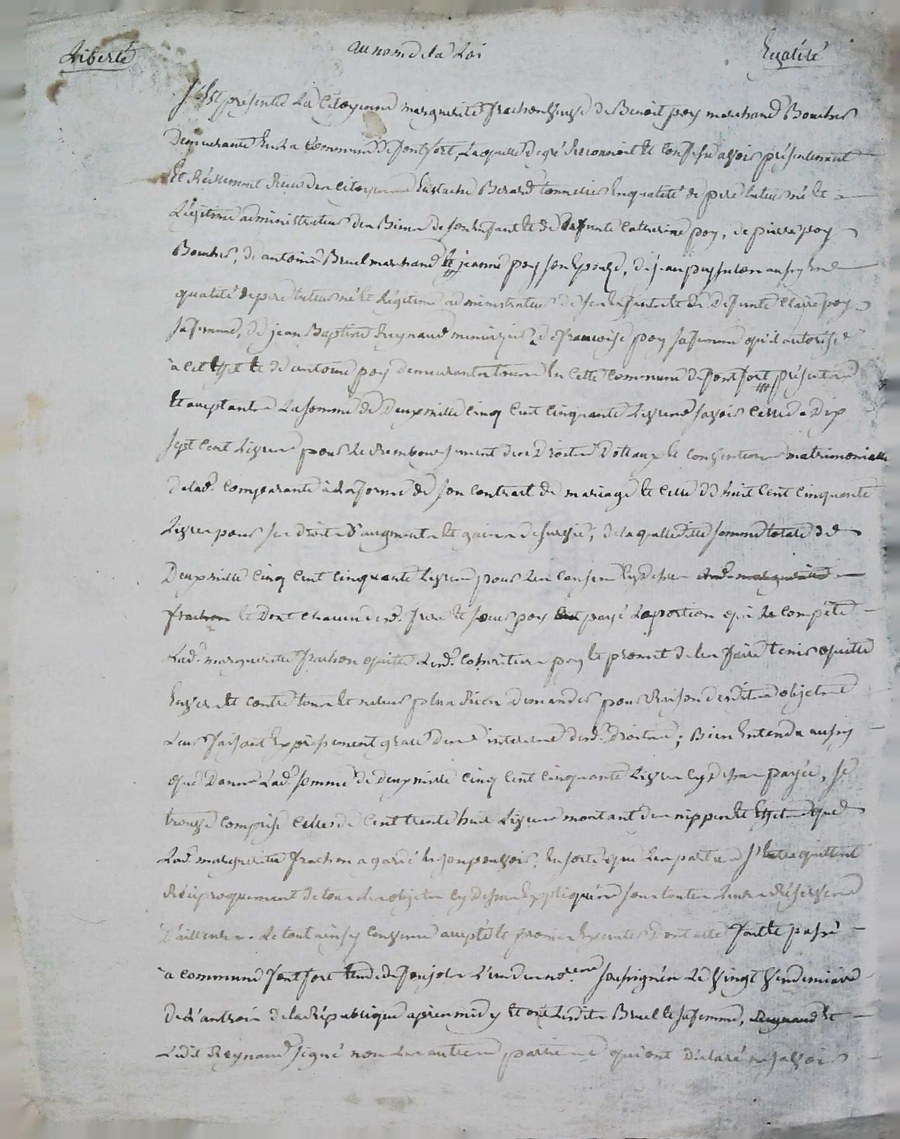 Liberté au nom de la Loi Egalité
S'est présentée La Citoyenne marguerite frachon veuve de Benoit poy marchand Boucher
Demeurante En la Commune de fontfort, Laquelle de gré Reconnoit et Confesse avoir présentement
Et Réellement Receu du Citoyen Eustache Berard tonnelier En qualité de pere tuteur né et
Légitime administrateur des Biens de son Enfant et de deffunte Catherine poy, de pierre poy
Boucher, de antoine Bruel marchand et jeanne poy son Epouse, de jean puy aussy en
qualité de pere tuteur né et Légitime administrateur de son Enfant et de Deffunte Claire poy
Sa femme, de jean Baptiste Reynaud menuizier et de francoise poy Sa femme qu'il autorise
a cet Effet et de antoine poy demeurants tous En Cette Commune de fontfort présents
Et acceptants La somme de Deux mille Cinq Cent Cinquante Livres Savoir Celle de Dix
Sept Cent Livres pour Le Remboursement des Droits Dotaux et Conventions matrimoniales
de lad. Comparante à La forme de Son Contrat de mariage et Celle de huit Cent Cinquante
Livres pour Ses droits D'augment et gains de survie, de laquelle ditte somme totale de
Deux mille Cinq Cent Cinquante Livres pour Les Causes Cy dessus
frachon et Dont Chacun desd. frere et Soeurs poy payé La portion qui Le Compète
Lad. marguerite frachon quitte Lesd. Cohéritiers poy et promet de les faire tenir quitte
Envers et Contre tous et ne leur plus Rien demander pour Raison desdits objets
Leur faisant Expressement grace des interets desd. Droits; Bien Entendu aussy
que Dans Lad. somme de deux mille Cinq Cent Cinquante Livres Cy dessus payée, Se
trouve Comprise Celle de Cent trente huit Livres montant des nippes et Effets que
Lad. marguerite frachon a gardé En son pouvoir, En sorte que Les parties S'entrequittent
Réciproquement de tous Les objets Cy dessus Expliqués sous toutes Leurs Réserves
D'ailleurs. Le tout ainsy Convenu accepté et promis Executer Dont acte fait et passé
a Commune fontfort Etude de Soussignés Le Vingt Vendemiaire
de L'an trois de la République après midy Et ont Lesdits Bruel et Sa femme, Et
Ledit Reynaud Signé non Les autres parties qui ont Déclaré ne Savoir